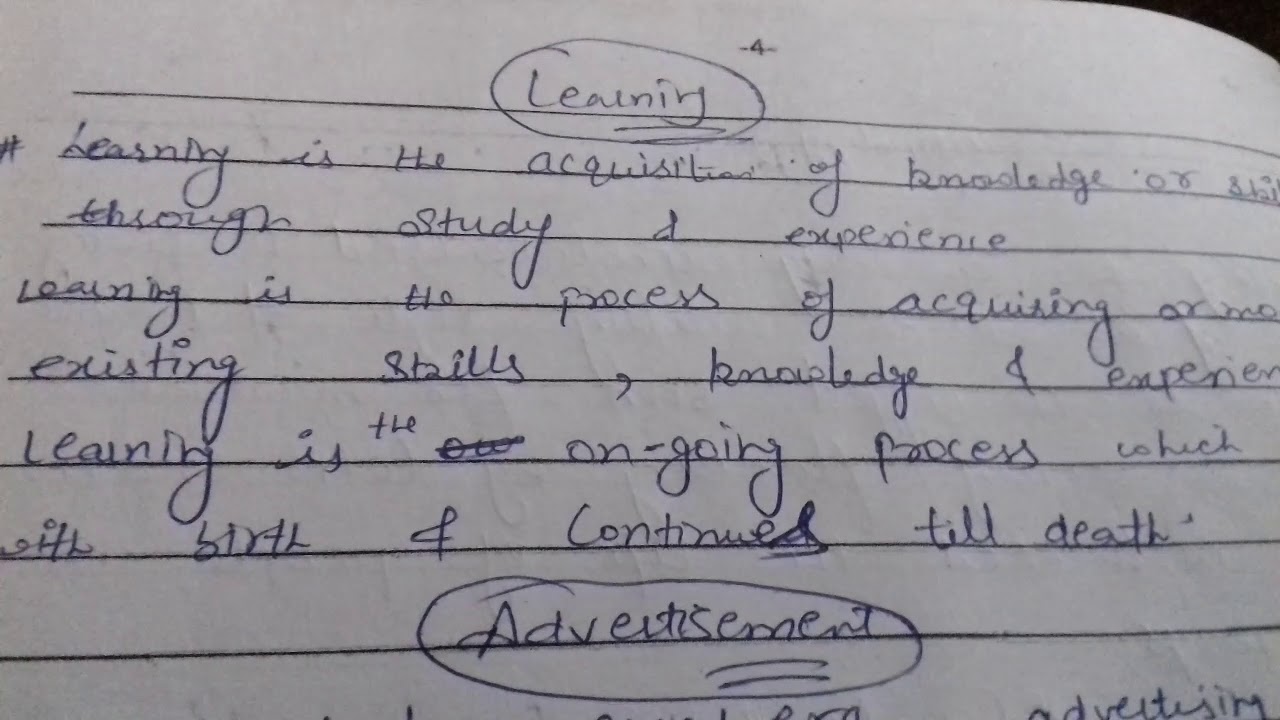 -4-
Learning
# Learning is the acquisition of knowledge or
through study & experience
Learning is the process of acquiring or
existing skills , knowledge &
Learning is the on-going process which
birth & Continues till death.
Advertisement
advertising